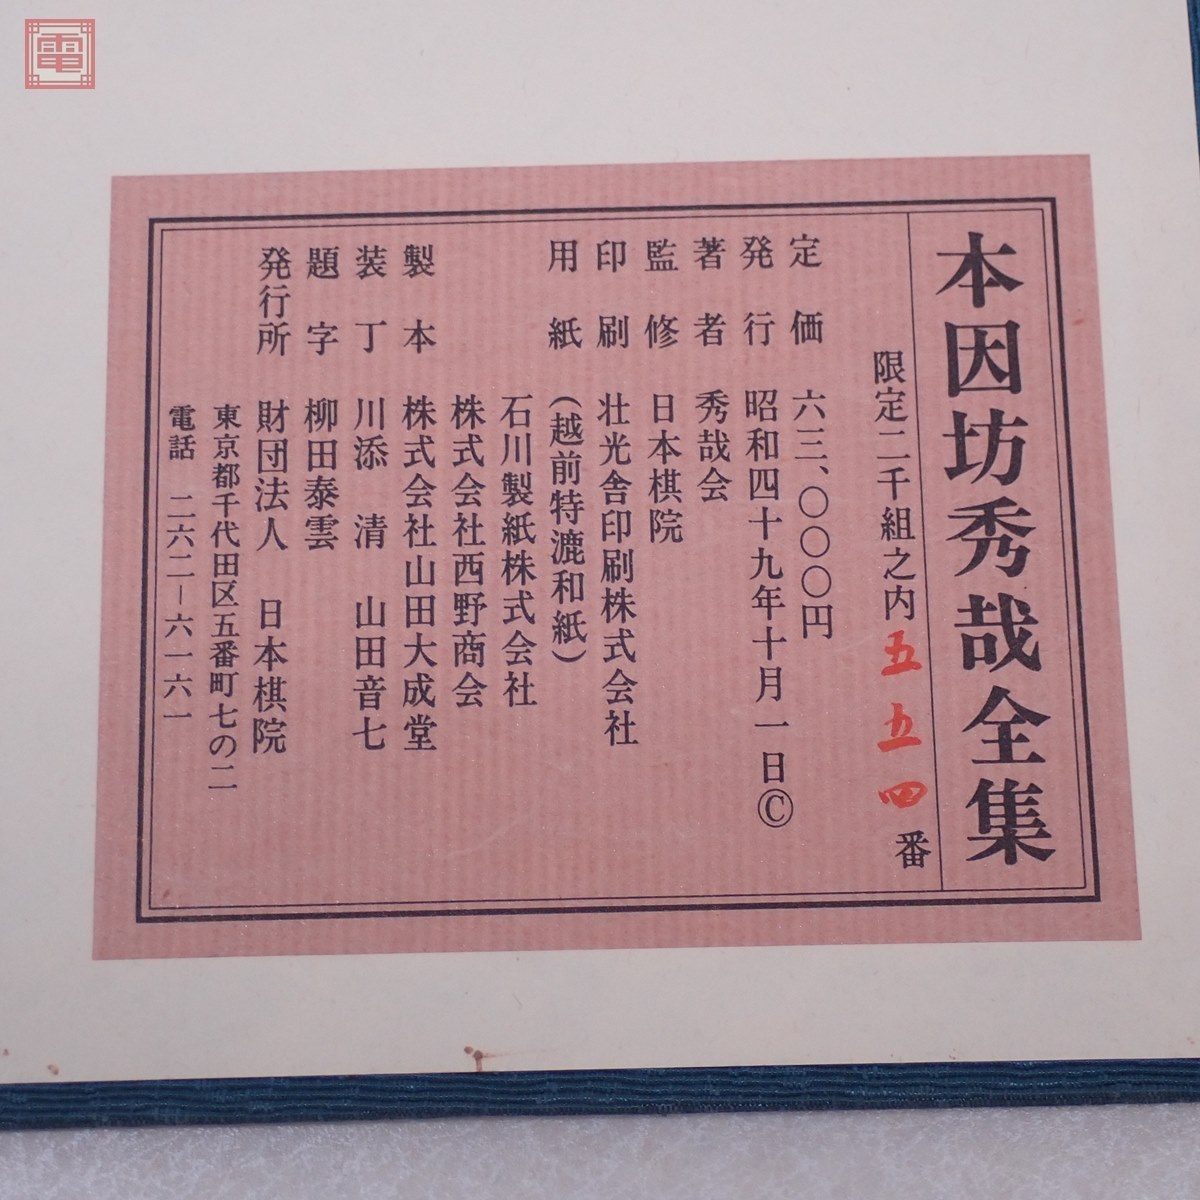 電
本因坊秀哉全集
限定二千組之内五五四番
定価 六三、〇〇〇円
発行 昭和四十九年十月一日Ⓒ
著者 秀哉会
監修 日本棋院
印刷 壮光舎印刷株式会社
用紙 (越前特漉和紙)
石川製紙株式会社
株式会社西野商会
製本 株式会社山田大成堂
装丁 川添 清 山田音七
題字 柳田泰雲
発行所 財団法人 日本棋院
東京都千代田区五番町七の二
電話 二六二－六一六一